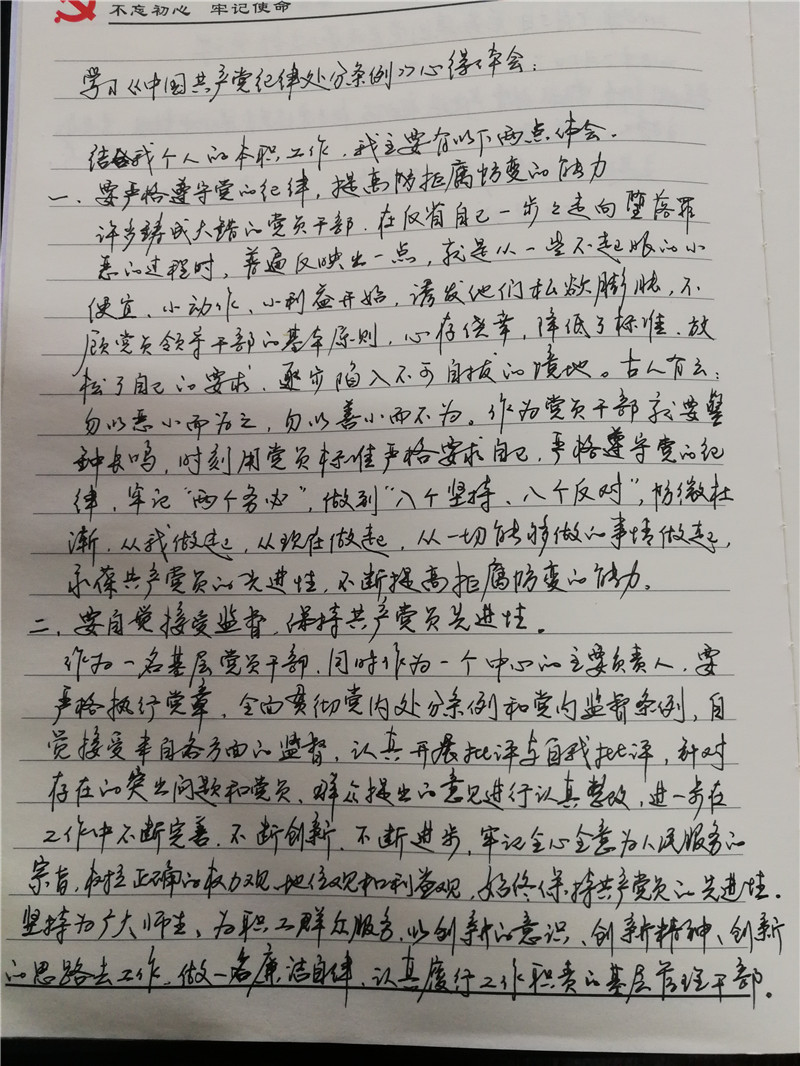 不忘初心 牢记使命
学习《中国共产党纪律处分条例》心得体会：
结合我个人的本职工作，我主要有以下两点体会。
一、要严格遵守党的纪律，提高防拒腐防变的能力
许多铸成大错的党员干部，在反省自己一步之走向堕落罪
恶的过程时，普遍反映出一点，就是从一些不起眼的小
便宜、小动作、小利益开始，诱发他们私欲膨胀，不
顾党员领导干部的基本原则，心存侥幸，降低了标准，放
松了自己的要求，逐步陷入不可自拔的境地。古人有云：
勿以恶小而为之，勿以善小而不为。作为党员干部就要警
钟长鸣，时刻用党员标准严格要求自己，严格遵守党的纪
律，牢记“两个务必”，做到“八个坚持、八个反对”，防微杜
渐，从我做起，从现在做起，从一切能够做的事情做起，
永葆共产党员的先进性，不断提高拒腐防变的能力。
二、要自觉接受监督，保持共产党员先进性。
作为一名基层党员干部，同时作为一个中心的主要负责人，要
严格执行党章，全面贯彻党内处分条例和党内监督条例，自
觉接受来自各方面的监督，认真开展批评与自我批评，针对
存在的突出问题和党员、群众提出的意见进行认真整改，进一步在
工作中不断完善，不断创新，不断进步，牢记全心全意为人民服务的
宗旨，树立正确的权力观、地位观和利益观，始终保持共产党员的先进性。
坚持为广大师生、为职工群众服务，以创新的意识、创新精神、创新
的思路去工作，做一名廉洁自律、认真履行工作职责的基层管理干部。